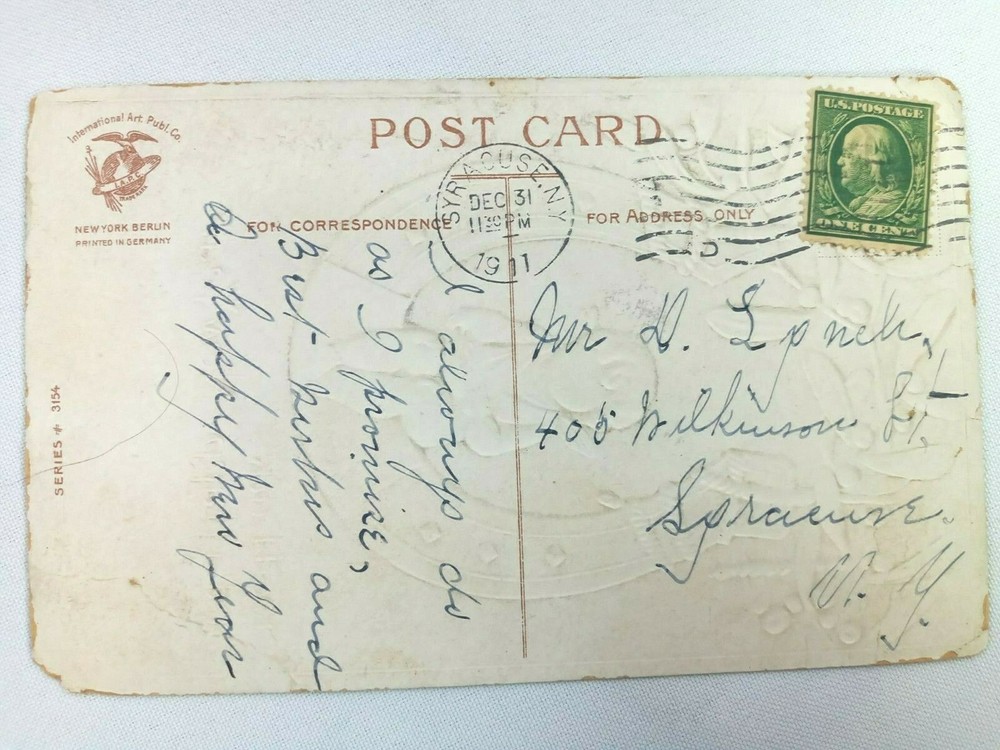 International Art Publ. Co.
I.A.P.C.
TRADEMARK
NEW YORK BERLIN
PRINTED IN GERMANY
POST CARD
SYRACUSE, N.Y.
DEC 31
11 30 PM
1911
U.S. POSTAGE
ONE CENT
FOR CORRESPONDENCE
FOR ADDRESS ONLY
I always do
as I promise,
Best wishes and
a happy New Year
Mr D. Lynch,
405 Wilkinson St,
Syracuse.
N. Y.
SERIES # 3154